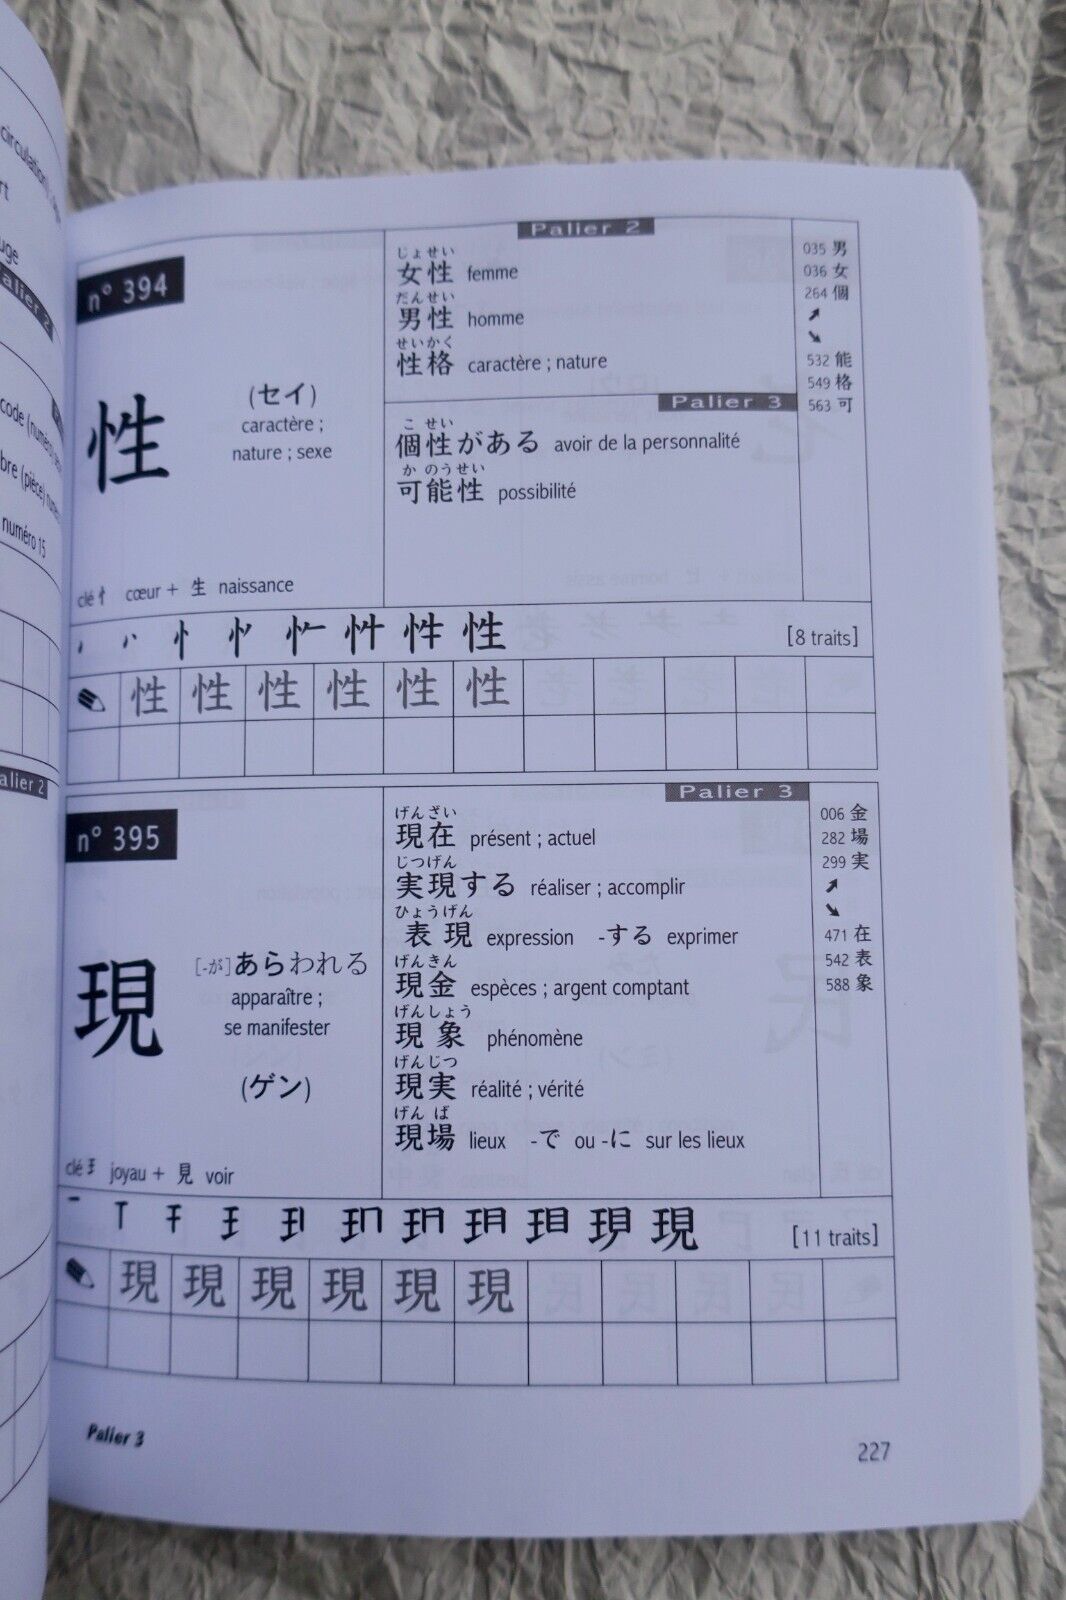 circulation)
rt
uge
Palier 2
code (numéro)
bre (pièce)
numéro 15
alier 2
n° 394
性
(セイ)
caractère ;
nature ; sexe
clé忄 cœur + 生 naissance
Palier 2
じょせい
女性 femme
だんせい
男性 homme
せいかく
性格 caractère ; nature
Palier 3
こ せい
個性がある avoir de la personnalité
か のうせい
可能性 possibilité
035 男
036 女
264 個
➚
➘
532 能
549 格
563 可
性 [8 traits]
性 性 性 性 性 性
n° 395
現
[-が]あらわれる
apparaître ;
se manifester
(ゲン)
clé 王 joyau + 見 voir
Palier 3
げんざい
現在 présent ; actuel
じつげん
実現する réaliser ; accomplir
ひょうげん
表現 expression -する exprimer
げんきん
現金 espèces ; argent comptant
げんしょう
現象 phénomène
げんじつ
現実 réalité ; vérité
げん ば
現場 lieux -で ou -に sur les lieux
006 金
282 場
299 実
➚
➘
471 在
542 表
588 象
現 [11 traits]
現 現 現 現 現 現
Palier 3
227